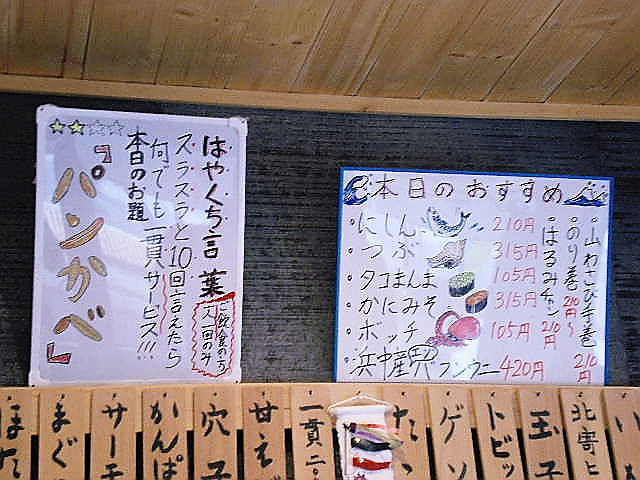 はやくち言葉
スラスラと10回言えたら
何でも一貫サービス!!!
本日のお題
『パンかべ』
ご飲食の方
一人一回のみ
本日のおすすめ
・にしん 210円
・つぶ 315円
・タコまんま 105円
・かにみそ 315円
・ボッチ 105円
・浜中産 420円
・山わさび手巻 210円
・のり巻 210円～
・はるみチャン 210円
いか
北寄
玉子
トビッ
ゲソ
たこ
一貫二〇
甘え
穴子
かんぱ
サーモ
まぐ
ほた